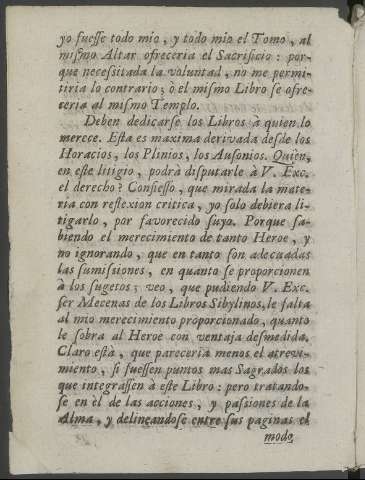 yo fuesse todo mio, y todo mio el Tomo, al
mismo Altar ofreceria el Sacrificio: por-
que necessitada la voluntad, no me permi-
tiria lo contrario; ò el mismo Libro se ofre-
ceria al mismo Templo.
Deben dedicarse los Libros à quien lo
merece. Esta es maxima derivada desde los
Horacios, los Plinios, los Ausonios. Quien,
en este litigio, podrà disputarle à V. Exc.
el derecho? Confiesso, que mirada la mate-
ria con reflexion critica, yo solo debiera li-
tigarlo, por favorecido suyo. Porque sa-
biendo el merecimiento de tanto Heroe, y
no ignorando, que en tanto son adecuadas
las sumissiones, en quanto se proporcionen
à los sugetos; veo, que pudiendo V. Exc.
ser Mecenas de los Libros Sibylinos, le falta
al mio merecimiento proporcionado, quanto
le sobra al Heroe con ventaja desmedida.
Claro està, que pareceria menos el atrevi-
miento, si fuessen puntos mas Sagrados los
que integrassen à este Libro: pero tratando-
se en èl de las acciones, y passiones de la
Alma, y delineandose entre sus paginas el
modo